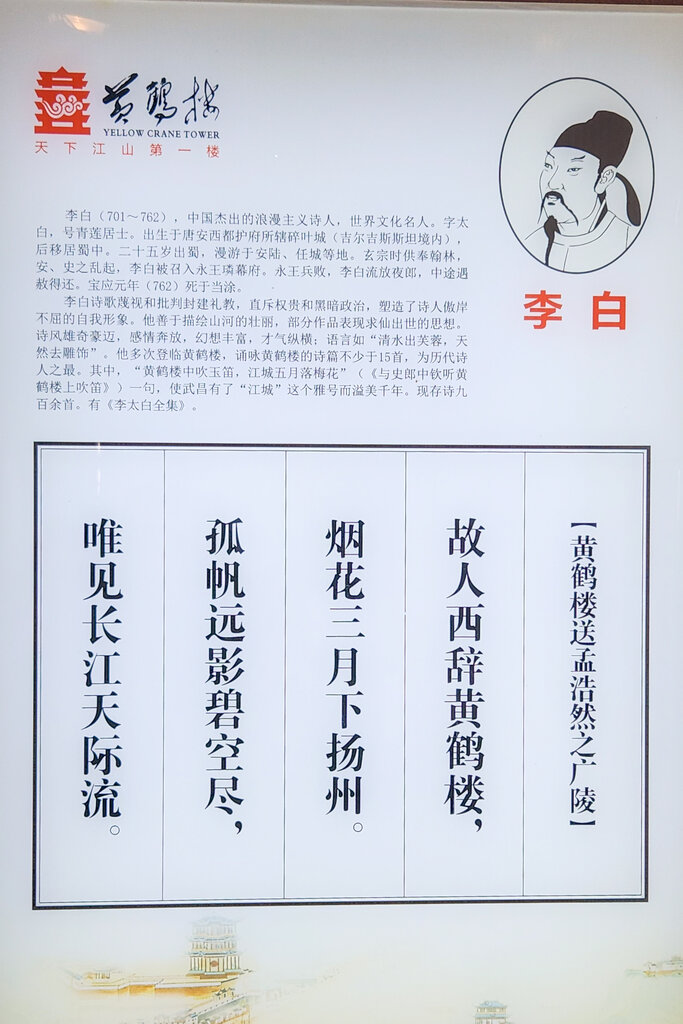 黄鹤楼
YELLOW CRANE TOWER
天下江山第一楼
李白（701～762），中国杰出的浪漫主义诗人，世界文化名人。字太
白，号青莲居士。出生于唐安西都护府所辖碎叶城（吉尔吉斯斯坦境内），
后移居蜀中。二十五岁出蜀，漫游于安陆、任城等地。玄宗时供奉翰林，
安、史之乱起，李白被召入永王璘幕府。永王兵败，李白流放夜郎，中途遇
赦得还。宝应元年（762）死于当涂。
李白诗歌蔑视和批判封建礼教，直斥权贵和黑暗政治，塑造了诗人傲岸
不屈的自我形象。他善于描绘山河的壮丽，部分作品表现求仙出世的思想。
诗风雄奇豪迈，感情奔放，幻想丰富，才气纵横；语言如“清水出芙蓉，天
然去雕饰”。他多次登临黄鹤楼，诵咏黄鹤楼的诗篇不少于15首，为历代诗
人之最。其中，“黄鹤楼中吹玉笛，江城五月落梅花”（《与史郎中钦听黄
鹤楼上吹笛》）一句，使武昌有了“江城”这个雅号而溢美千年。现存诗九
百余首。有《李太白全集》。
李白
【黄鹤楼送孟浩然之广陵】
故人西辞黄鹤楼，
烟花三月下扬州。
孤帆远影碧空尽，
唯见长江天际流。